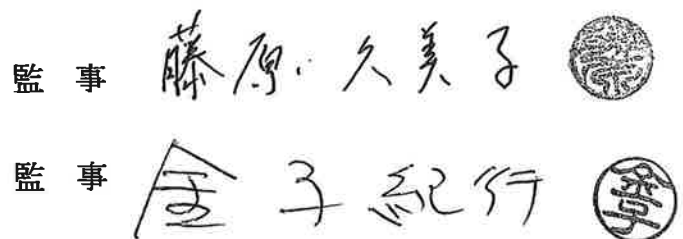 監事 藤原久美子
監事 金子紀行 金子